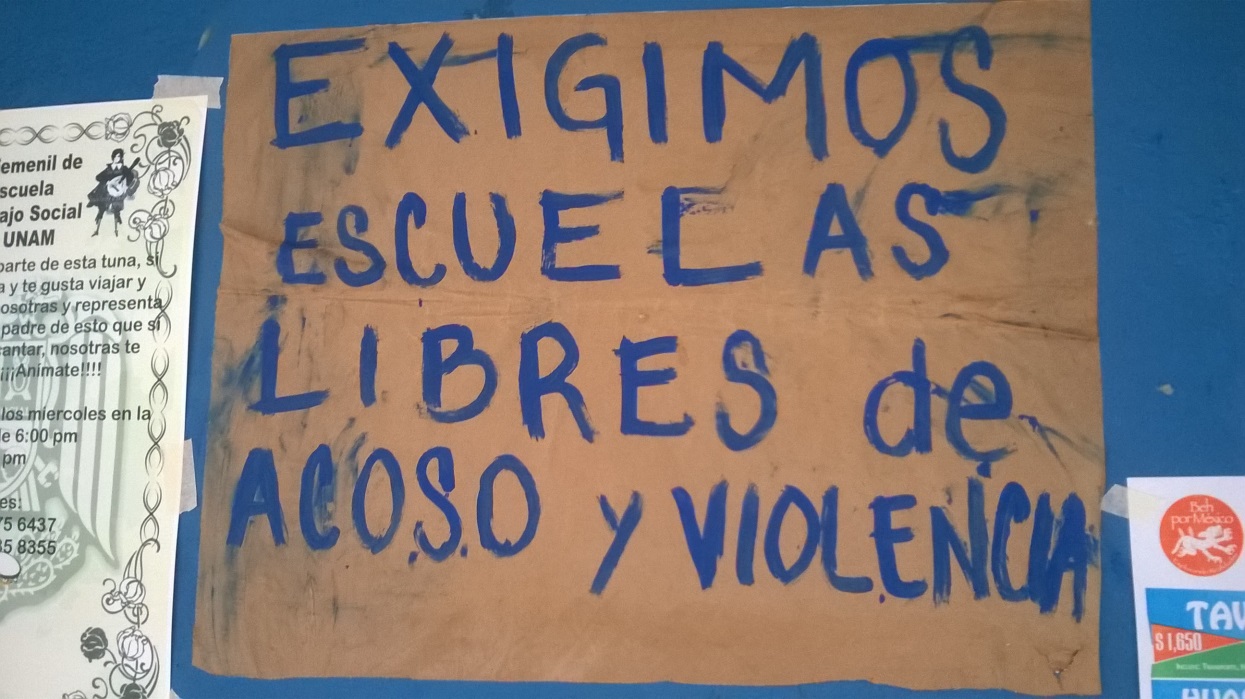 EXIGIMOS
ESCUELAS
LIBRES de
ACOSO y VIOLENCIA
de
ajo Social
UNAM
parte de esta tuna, si
a y te gusta viajar y
y representa
padre de esto que si
nosotras te
¡¡¡Anímate!!!!
los miercoles en la
6:00 pm
pm
6437
8355
Beh
por México
$ 1,650